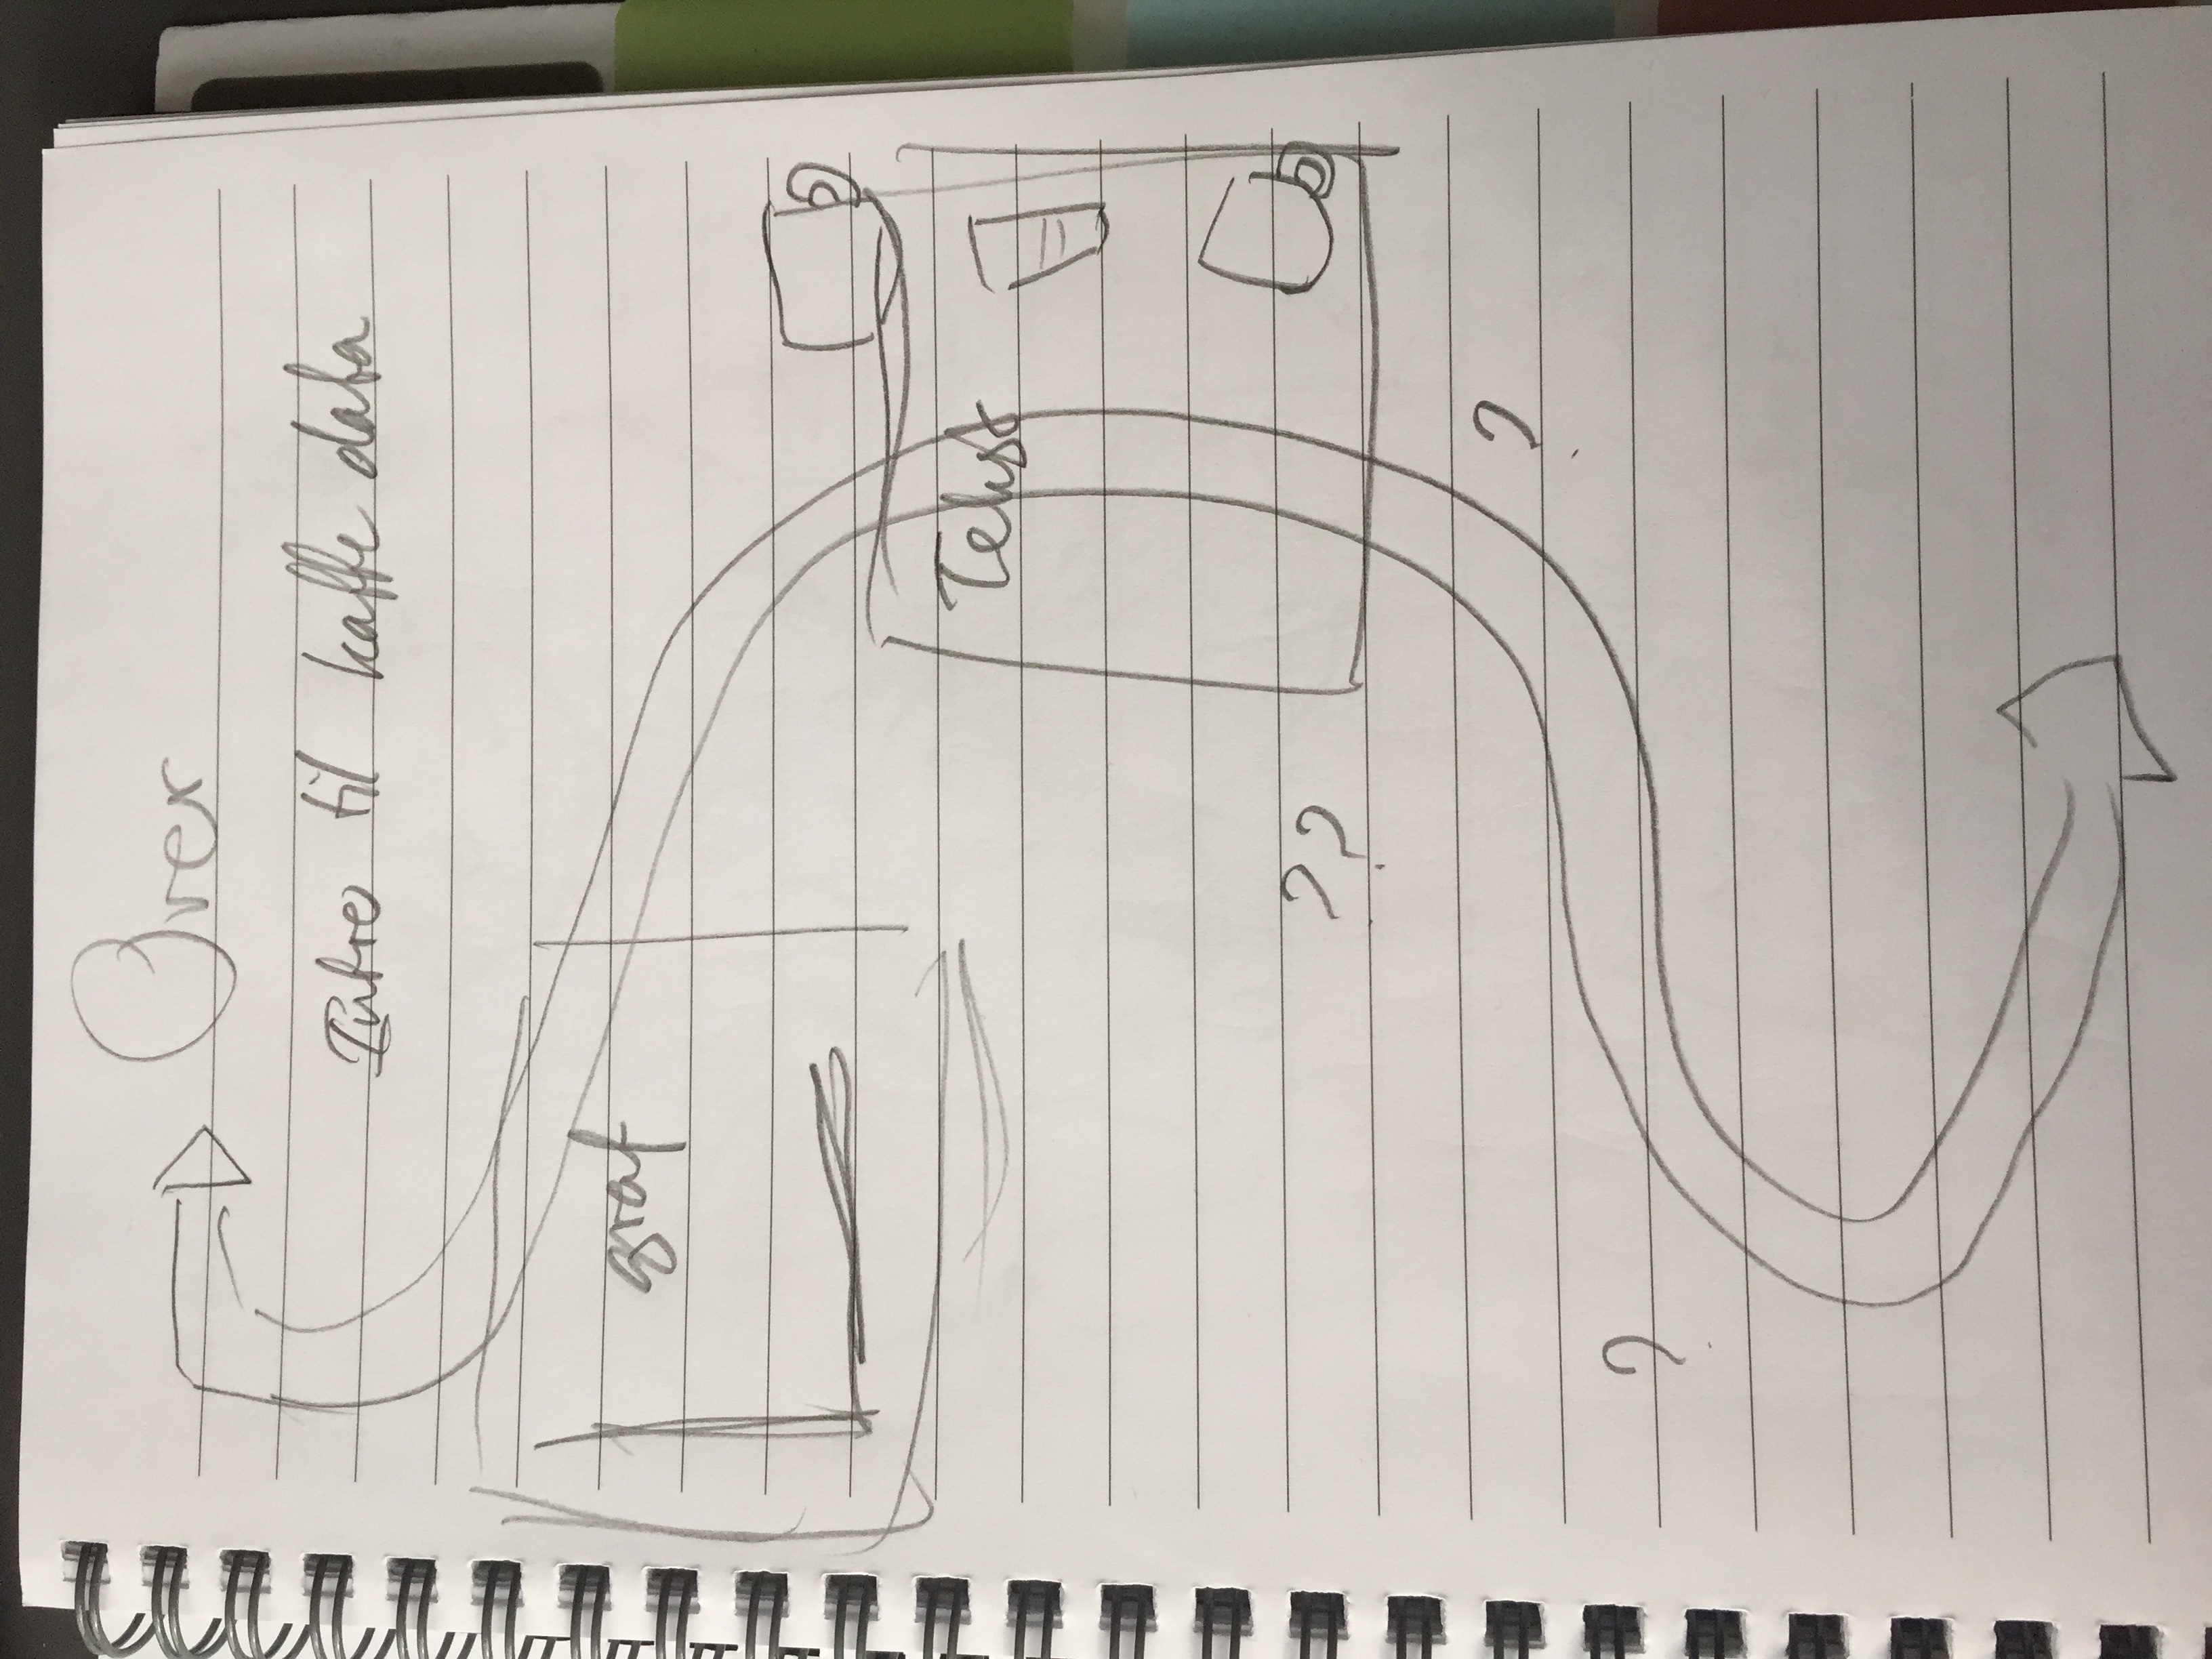 Over
Intro til kaffe data
graf
Tekst
??
?
?